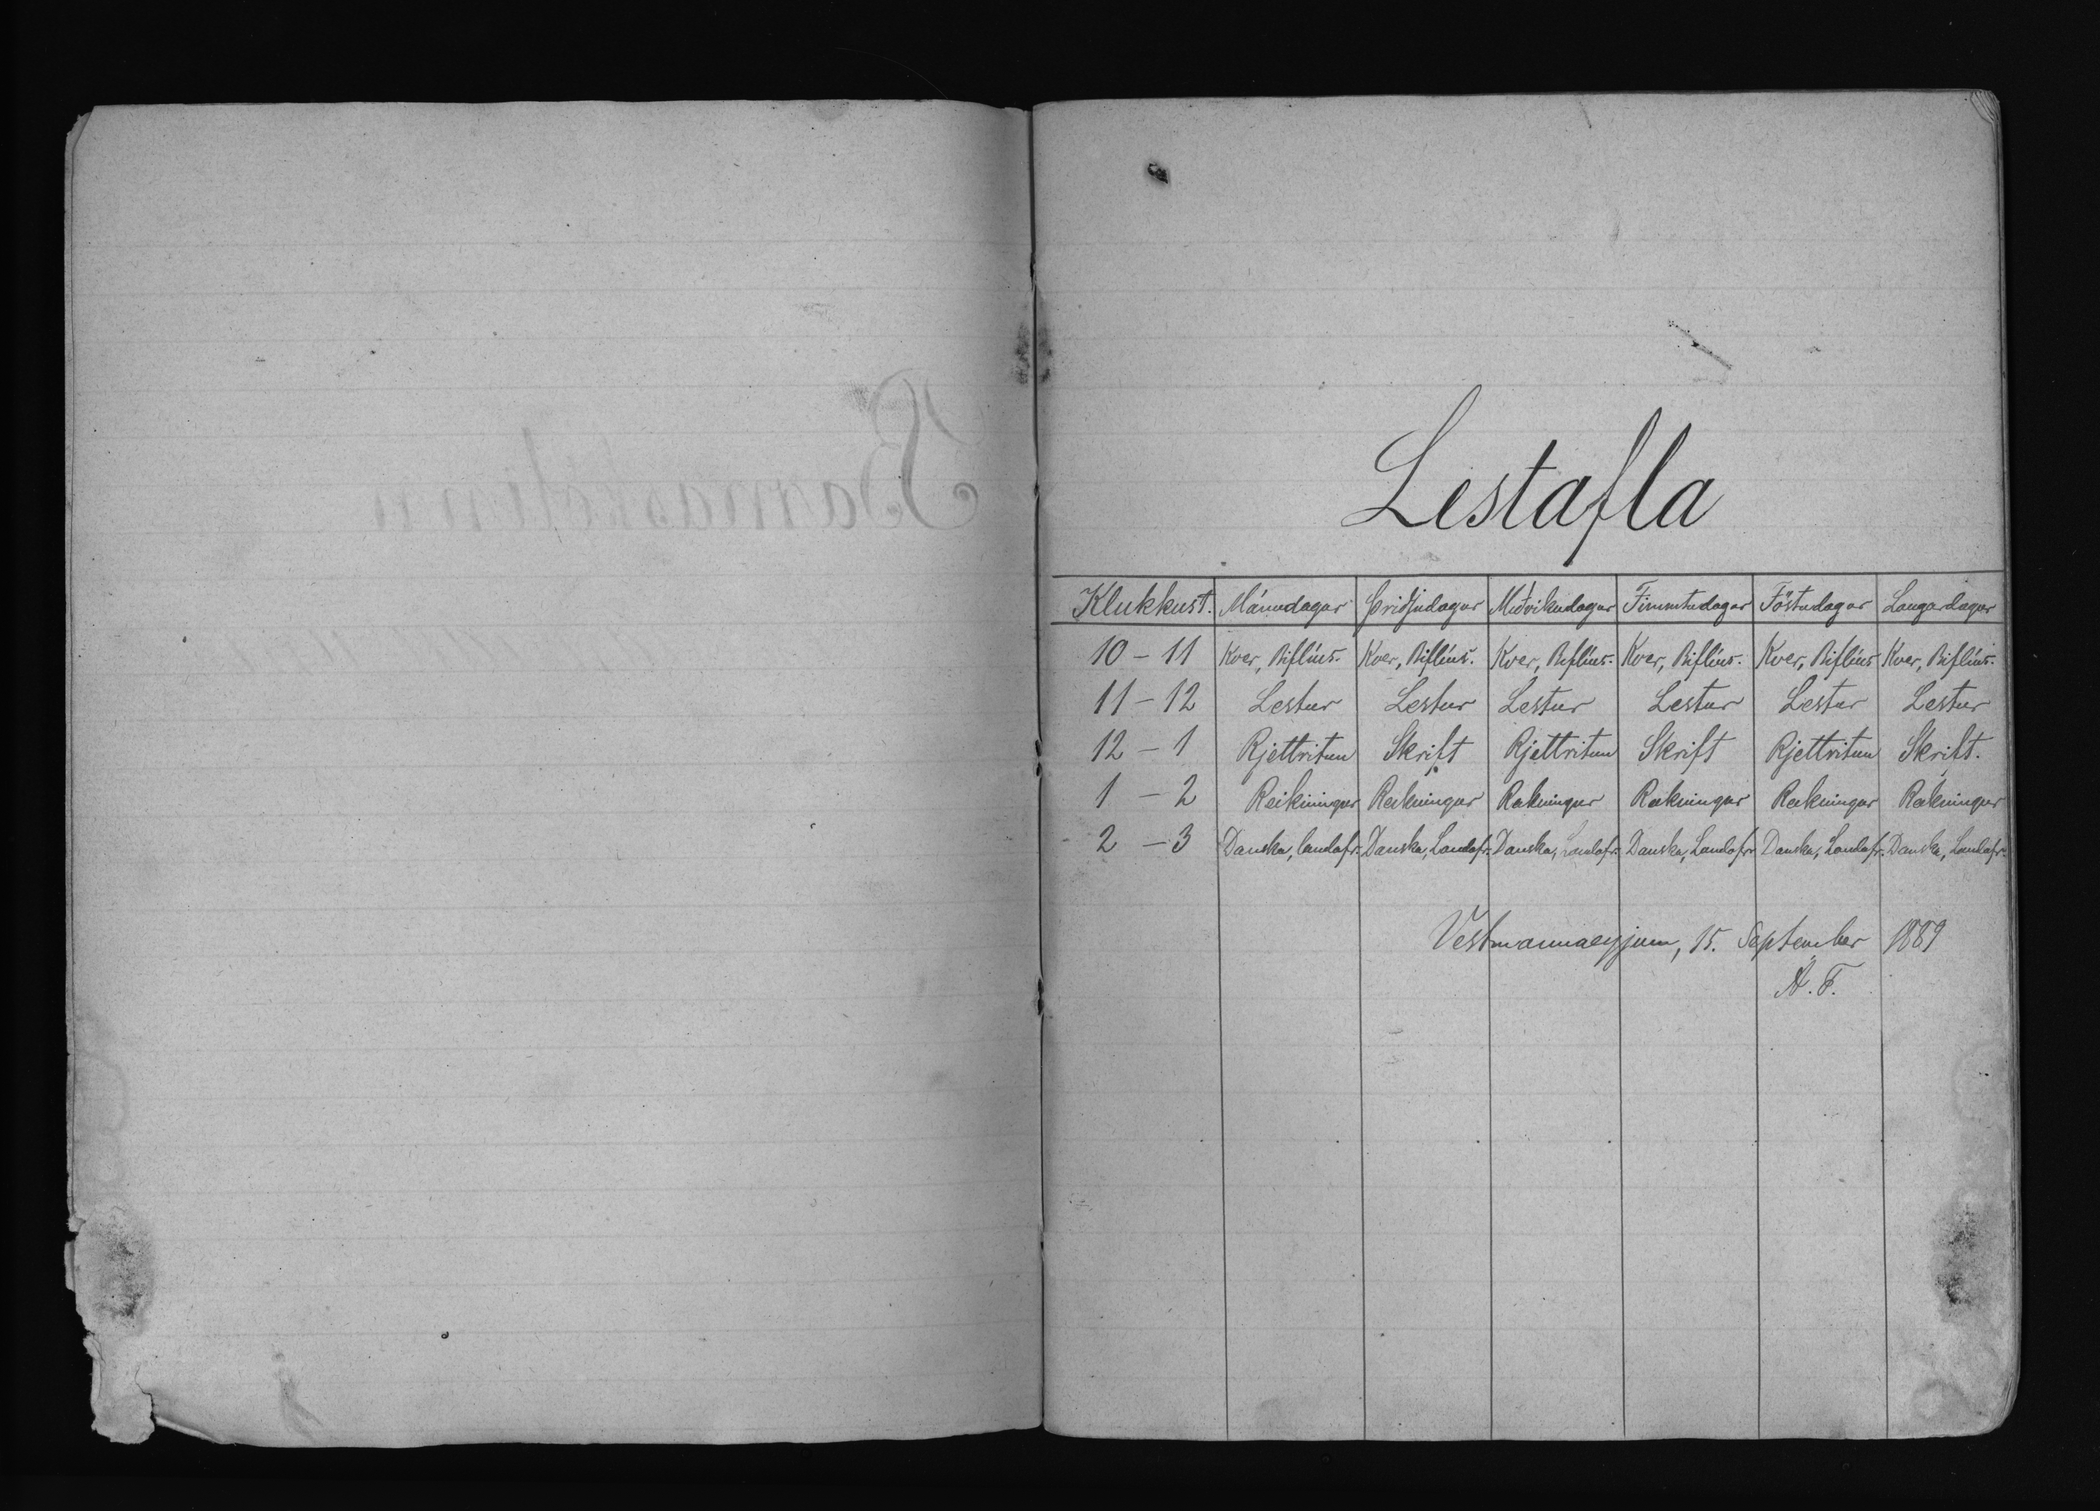 Lestafla
Klukkust. Mánudagar Þriðjudagar Miðvikudagar Fimmtudagar Föstudagar Laugardagar
10 – 11 Kver, Biflíus. Kver, Biflíus. Kver, Biflíus. Kver, Biflíus. Kver, Biflíus Kver, Biflíus.
11 – 12 Lestur Lestur Lestur Lestur Lestur Lestur
12 – 1 Rjettritun Skrift Rjettritun Skrift Rjettritun Skrift.
1 – 2 Reikningur Reikningur Reikningur Reikningur Reikningur Reikningur
2 – 3 Danska, landafr. Danska, Landafr. Danska, Landafr. Danska, Landafr. Danska, Landafr. Danska, Landafr.
Vestmannaeyjum, 15. September 1889
Á. F.